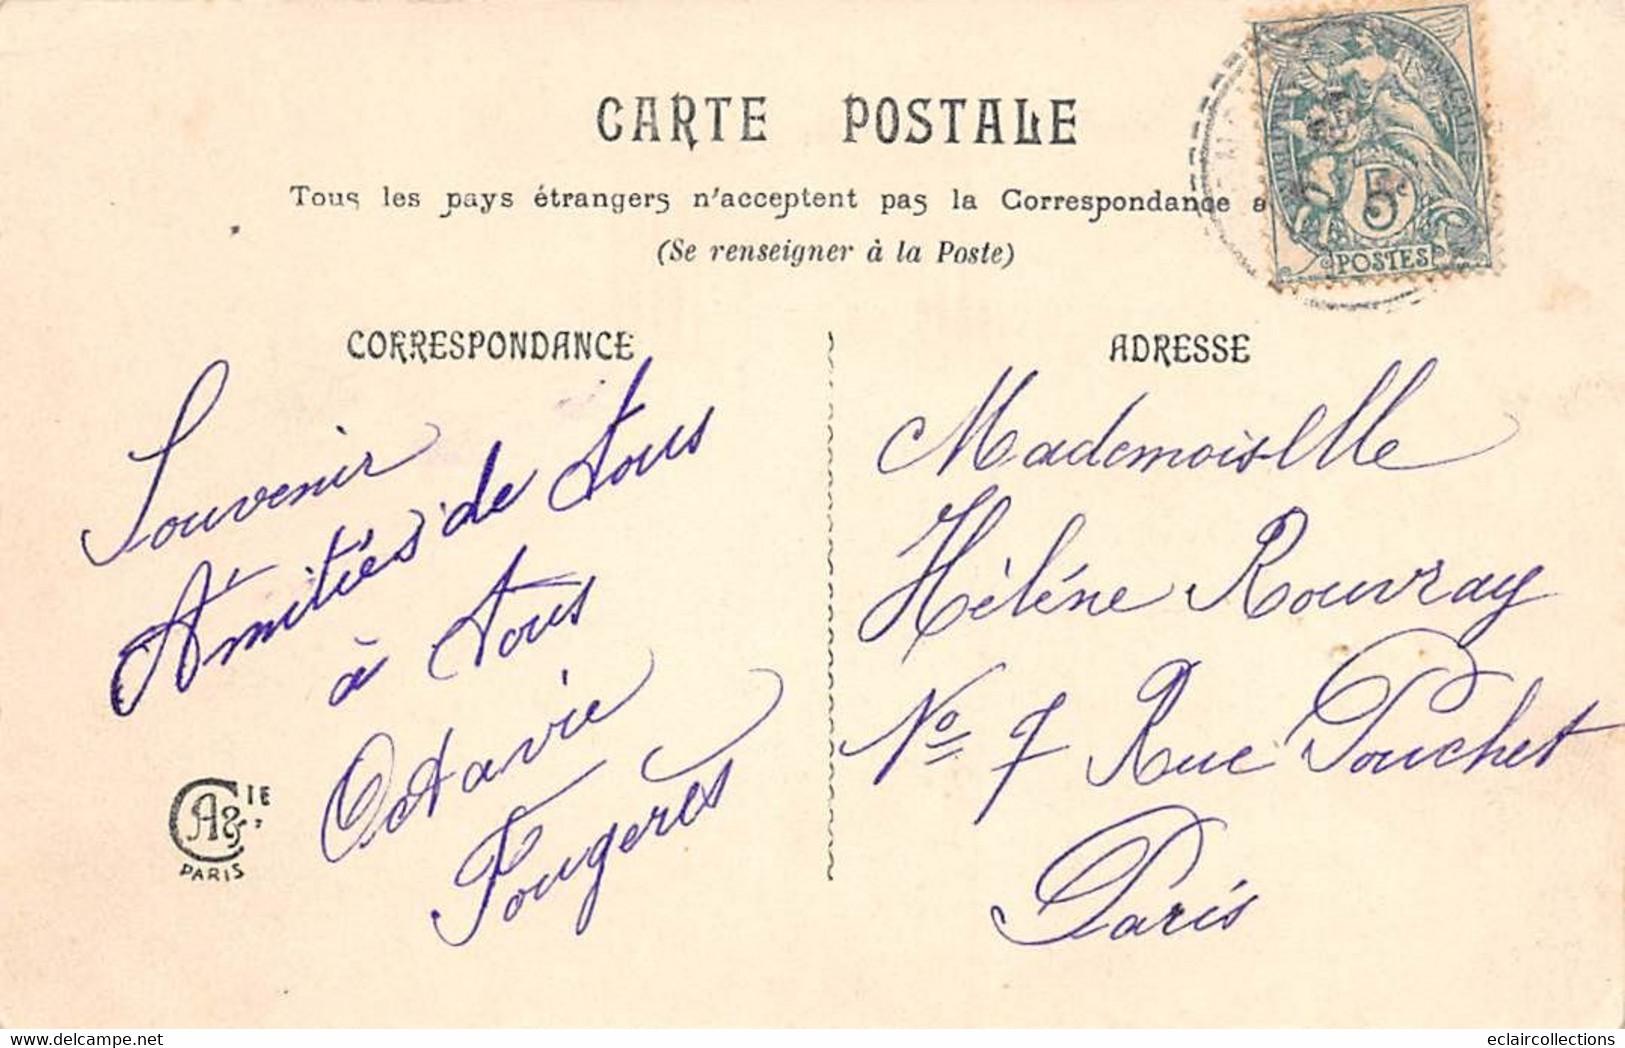 CARTE POSTALE
Tous les pays étrangers n'acceptent pas la Correspondance a
(Se renseigner à la Poste)
5c
POSTES
CORRESPONDANCE
Souvenir
Amitiés de tous
à tous
Octavie
Fougeres
CIE
PARIS
ADRESSE
Mademoiselle
Hélène Rouvray
No 7 Rue Pouchet
Paris
eclaircollections